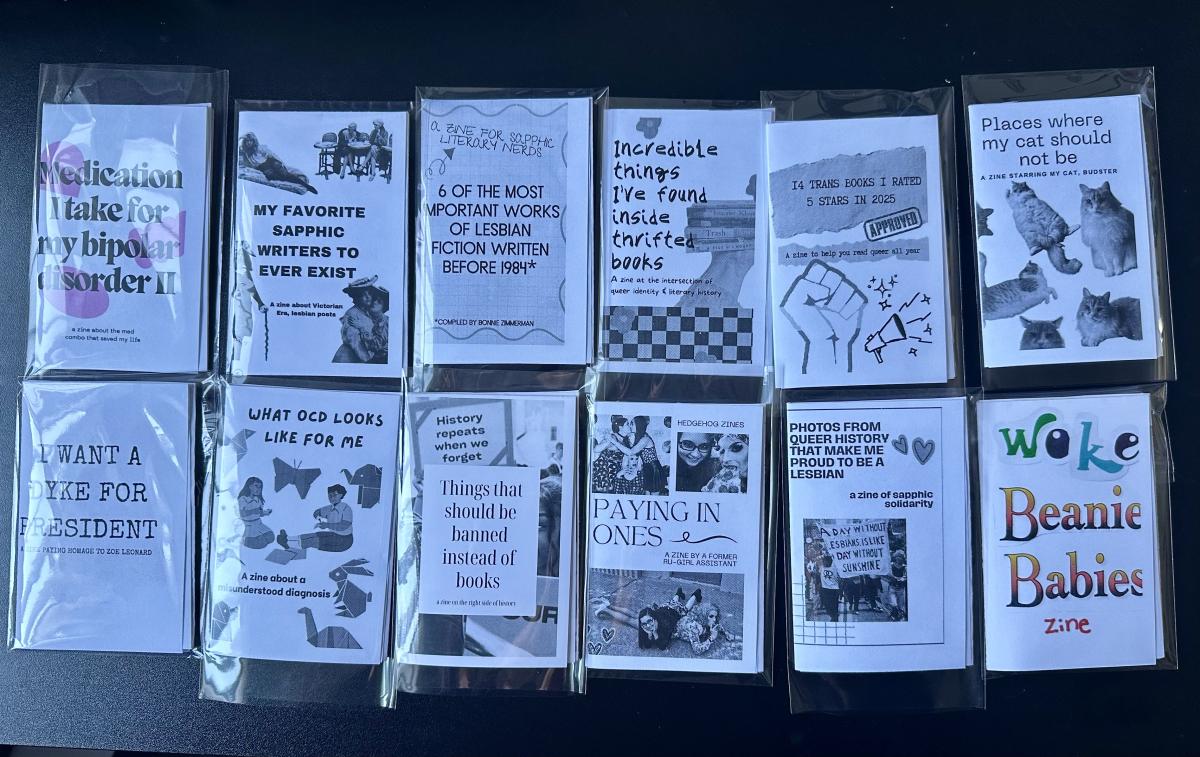 Medication
I take for
my bipolar
disorder II
a zine about the med
combo that saved my life
MY FAVORITE
SAPPHIC
WRITERS TO
EVER EXIST
A zine about Victorian
Era, lesbian poets
a ZINE FOR SAPPHIC
LITERARY NERDS
6 OF THE MOST
IMPORTANT WORKS
OF LESBIAN
FICTION WRITTEN
BEFORE 1984*
*COMPILED BY BONNIE ZIMMERMAN
Incredible
things
I've found
inside
thrifted
books
Trash
A zine at the intersection of
queer identity & literary history
14 TRANS BOOKS I RATED
5 STARS IN 2025
APPROVED
A zine to help you read queer all year
Places where
my cat should
not be
A ZINE STARRING MY CAT, BUDSTER
I WANT A
DYKE FOR
PRESIDENT
A ZINE PAYING HOMAGE TO ZOE LEONARD
WHAT OCD LOOKS
LIKE FOR ME
A zine about a
misunderstood diagnosis
History
repeats
when we
forget
Things that
should be
banned
instead of
books
a zine on the right side of history
OUR
HEDGEHOG ZINES
PAYING IN
ONES
A ZINE BY A FORMER
RU-GIRL ASSISTANT
PHOTOS FROM
QUEER HISTORY
THAT MAKE ME
PROUD TO BE A
LESBIAN
a zine of sapphic
solidarity
A DAY WITHOUT
LESBIANS IS LIKE
A DAY WITHOUT
SUNSHINE
Woke
Beanie
Babies
zine